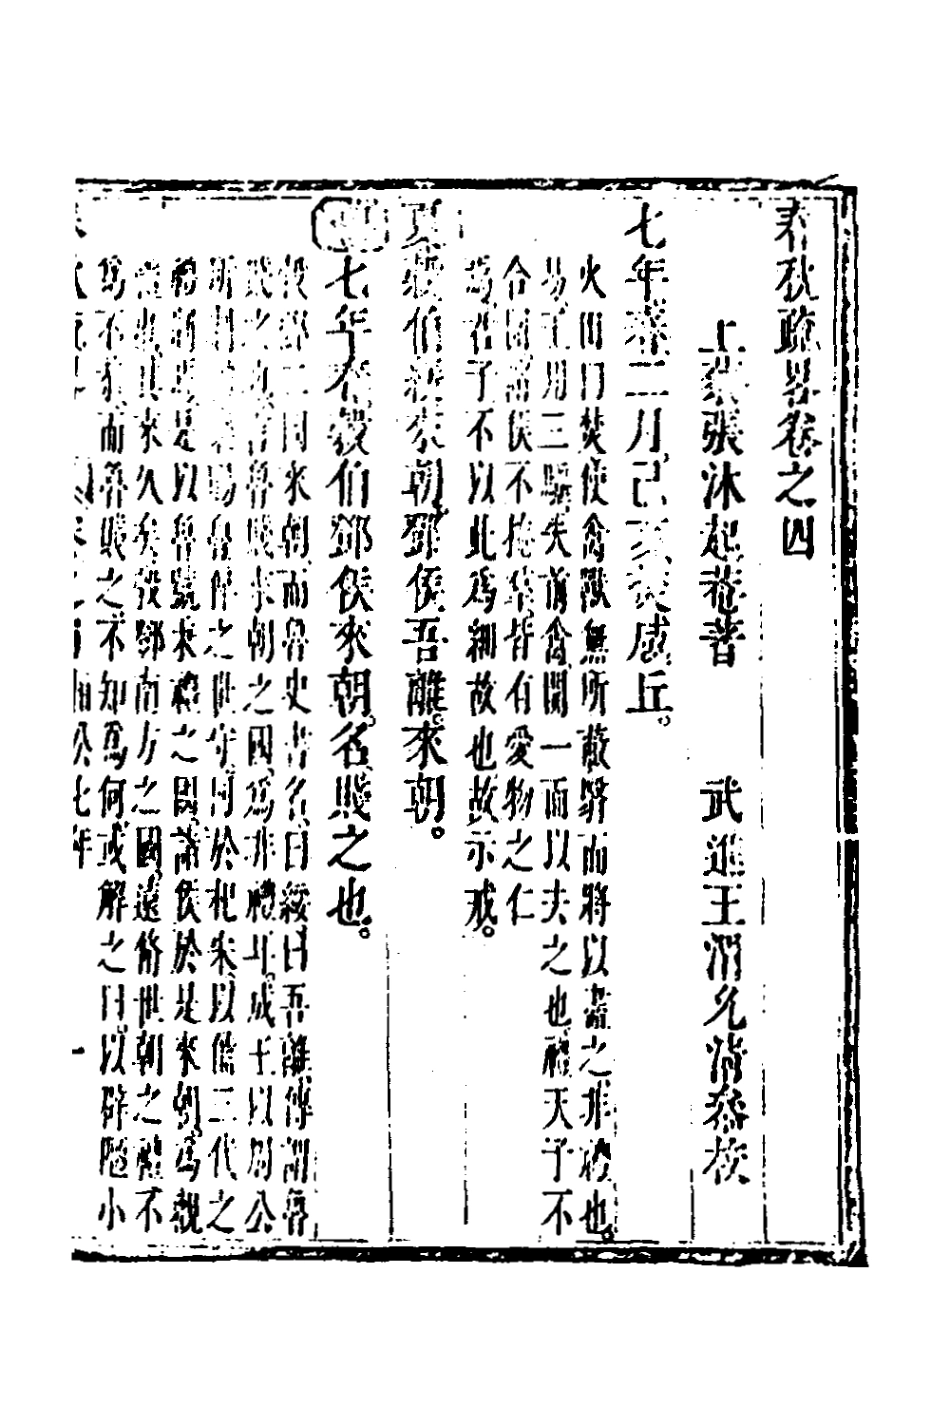 春秋疏畧卷之四
上蔡張沐起菴著 武進王渭允清叅校
七年春二月己亥焚咸丘。
火田曰焚使禽獸無所蔽驛而將以盡之非禮也。
易王用三驅失前禽開一面以夫之也禮天子不
合圍諸侯不掩羣皆有愛物之仁
爲君子不以此爲細故也故示戒。
夏榖伯綏來朝鄧侯吾離來朝。
七年春榖伯鄧侯來朝。名賤之也。
榖鄧二國來朝而魯史書名曰綏曰吾離傳謂魯
賤之也言魯賤來朝之國爲非禮耳成王以周公
賜魯侔之世守同於杞宋以備三代之
是以魯號秉禮之國諸侯於是來朝爲觀
其來久矣榖鄧南方之國遠脩世朝之禮不
爲不而魯賤之不知爲何或解之曰以辟陋小
桓公七年 一